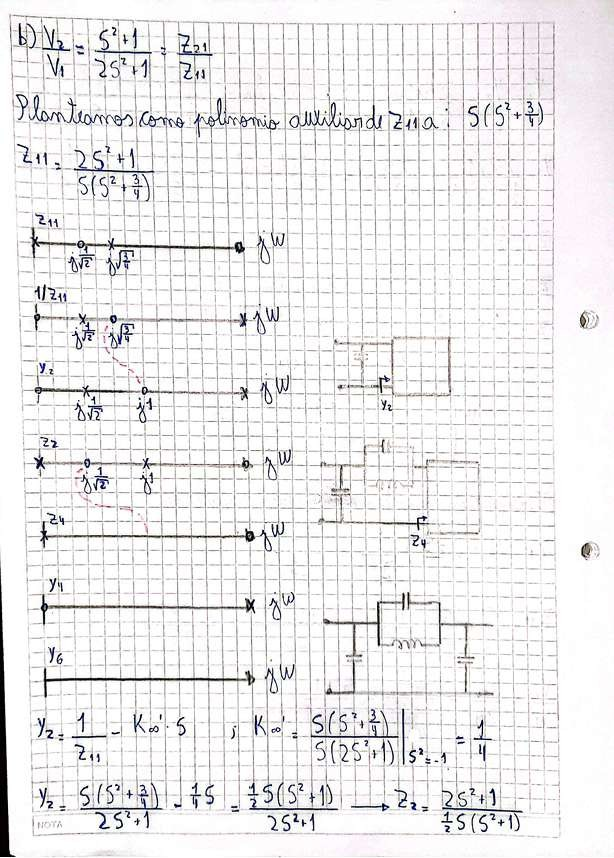 b) V₂/V₁ = (S²+1)/(2S²+1) = Z₂₁/Z₁₁
Planteamos como polinomio auxiliar de Z₁₁ a: S(S²+3/4)
Z₁₁ = (2S²+1)/(S(S²+3/4))
Z₁₁
jW
j1/√2 j√(3/4)
1/Z₁₁
jW
j1/√2 j√(3/4)
Y₂
jW
j1/√2 j1
Y₂
Z₂
jW
j1/√2 j1
Z₄
jW
Z₄
Y₄
jW
Y₆
jW
Y₂ = 1/Z₁₁ - K∞'·S ; K∞' = S(S²+3/4)/(S(2S²+1))|S²=-1 = 1/4
Y₂ = S(S²+3/4)/(2S²+1) - 1/4 S = (1/2 S(S²+1))/(2S²+1) → Z₂ = (2S²+1)/(1/2 S(S²+1))
NOTA